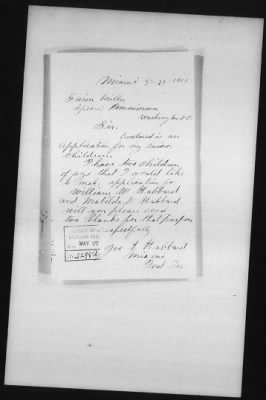 Miami 5-21-1907
Guion Miller
Special Commissioner
Washington D.C.
Sir:
Enclosed is an
application for my minor
children.
I have two children
of age that I would like
to make application for
William W. Hubbard
and Matilda D. Hubbard
will you please send
two blanks for that purpose
Respectfully
MAY 27
Joe A. Hubbard
Miami
Ind. Ter.